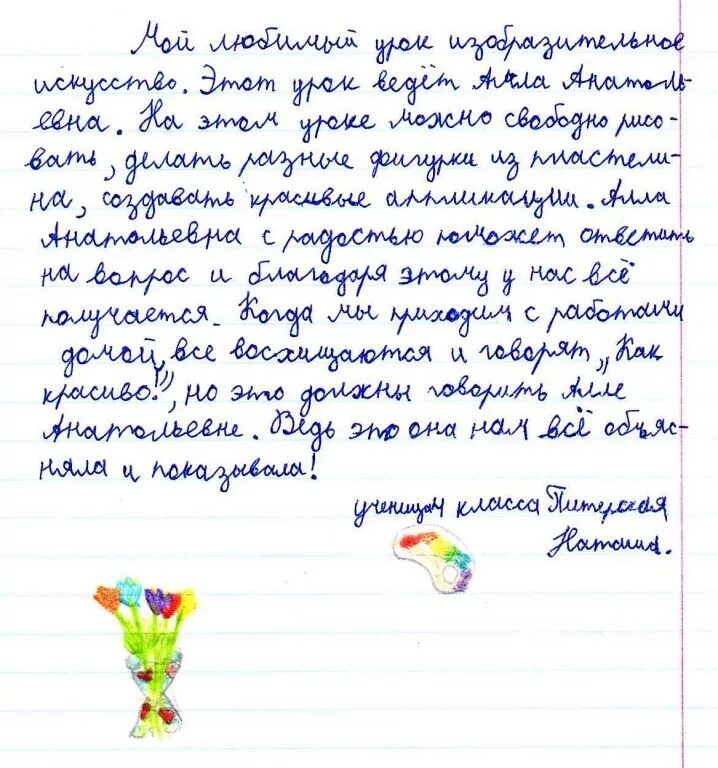 Мой любимый урок изобразительное
искусство. Этот урок ведёт Алла Анатоль-
евна. На этом уроке можно свободно рисо-
вать, делать разные фигурки из пластели-
на, создавать красивые аппликации. Алла
Анатольевна с радостью поможет ответить
на вопрос и благодаря этому у нас всё
получается. Когда мы приходим с работами
домой, все восхищаются и говорят „Как
красиво!", но это должны говорить Алле
Анатольевне. Ведь это она нам всё объяс-
няла и показывала!
ученица 4 класса Питерская
Наташа.